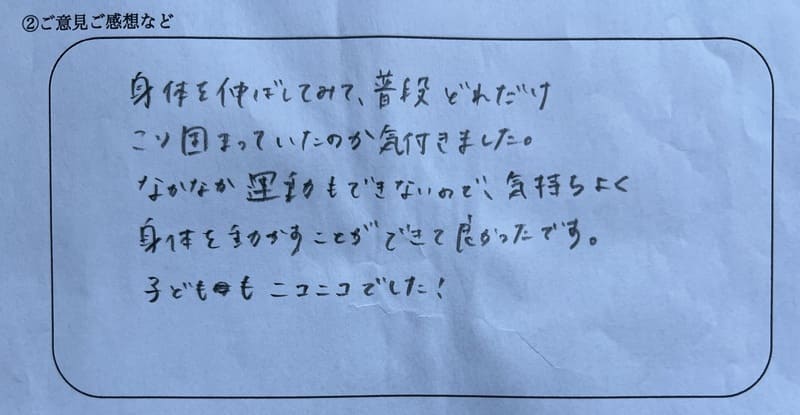 ②ご意見ご感想など
身体を伸ばしてみて、普段どれだけ
こり固まっていたのか気付きました。
なかなか運動もできないので、気持ちよく
身体を動かすことができて良かったです。
子どもも ニコニコでした！